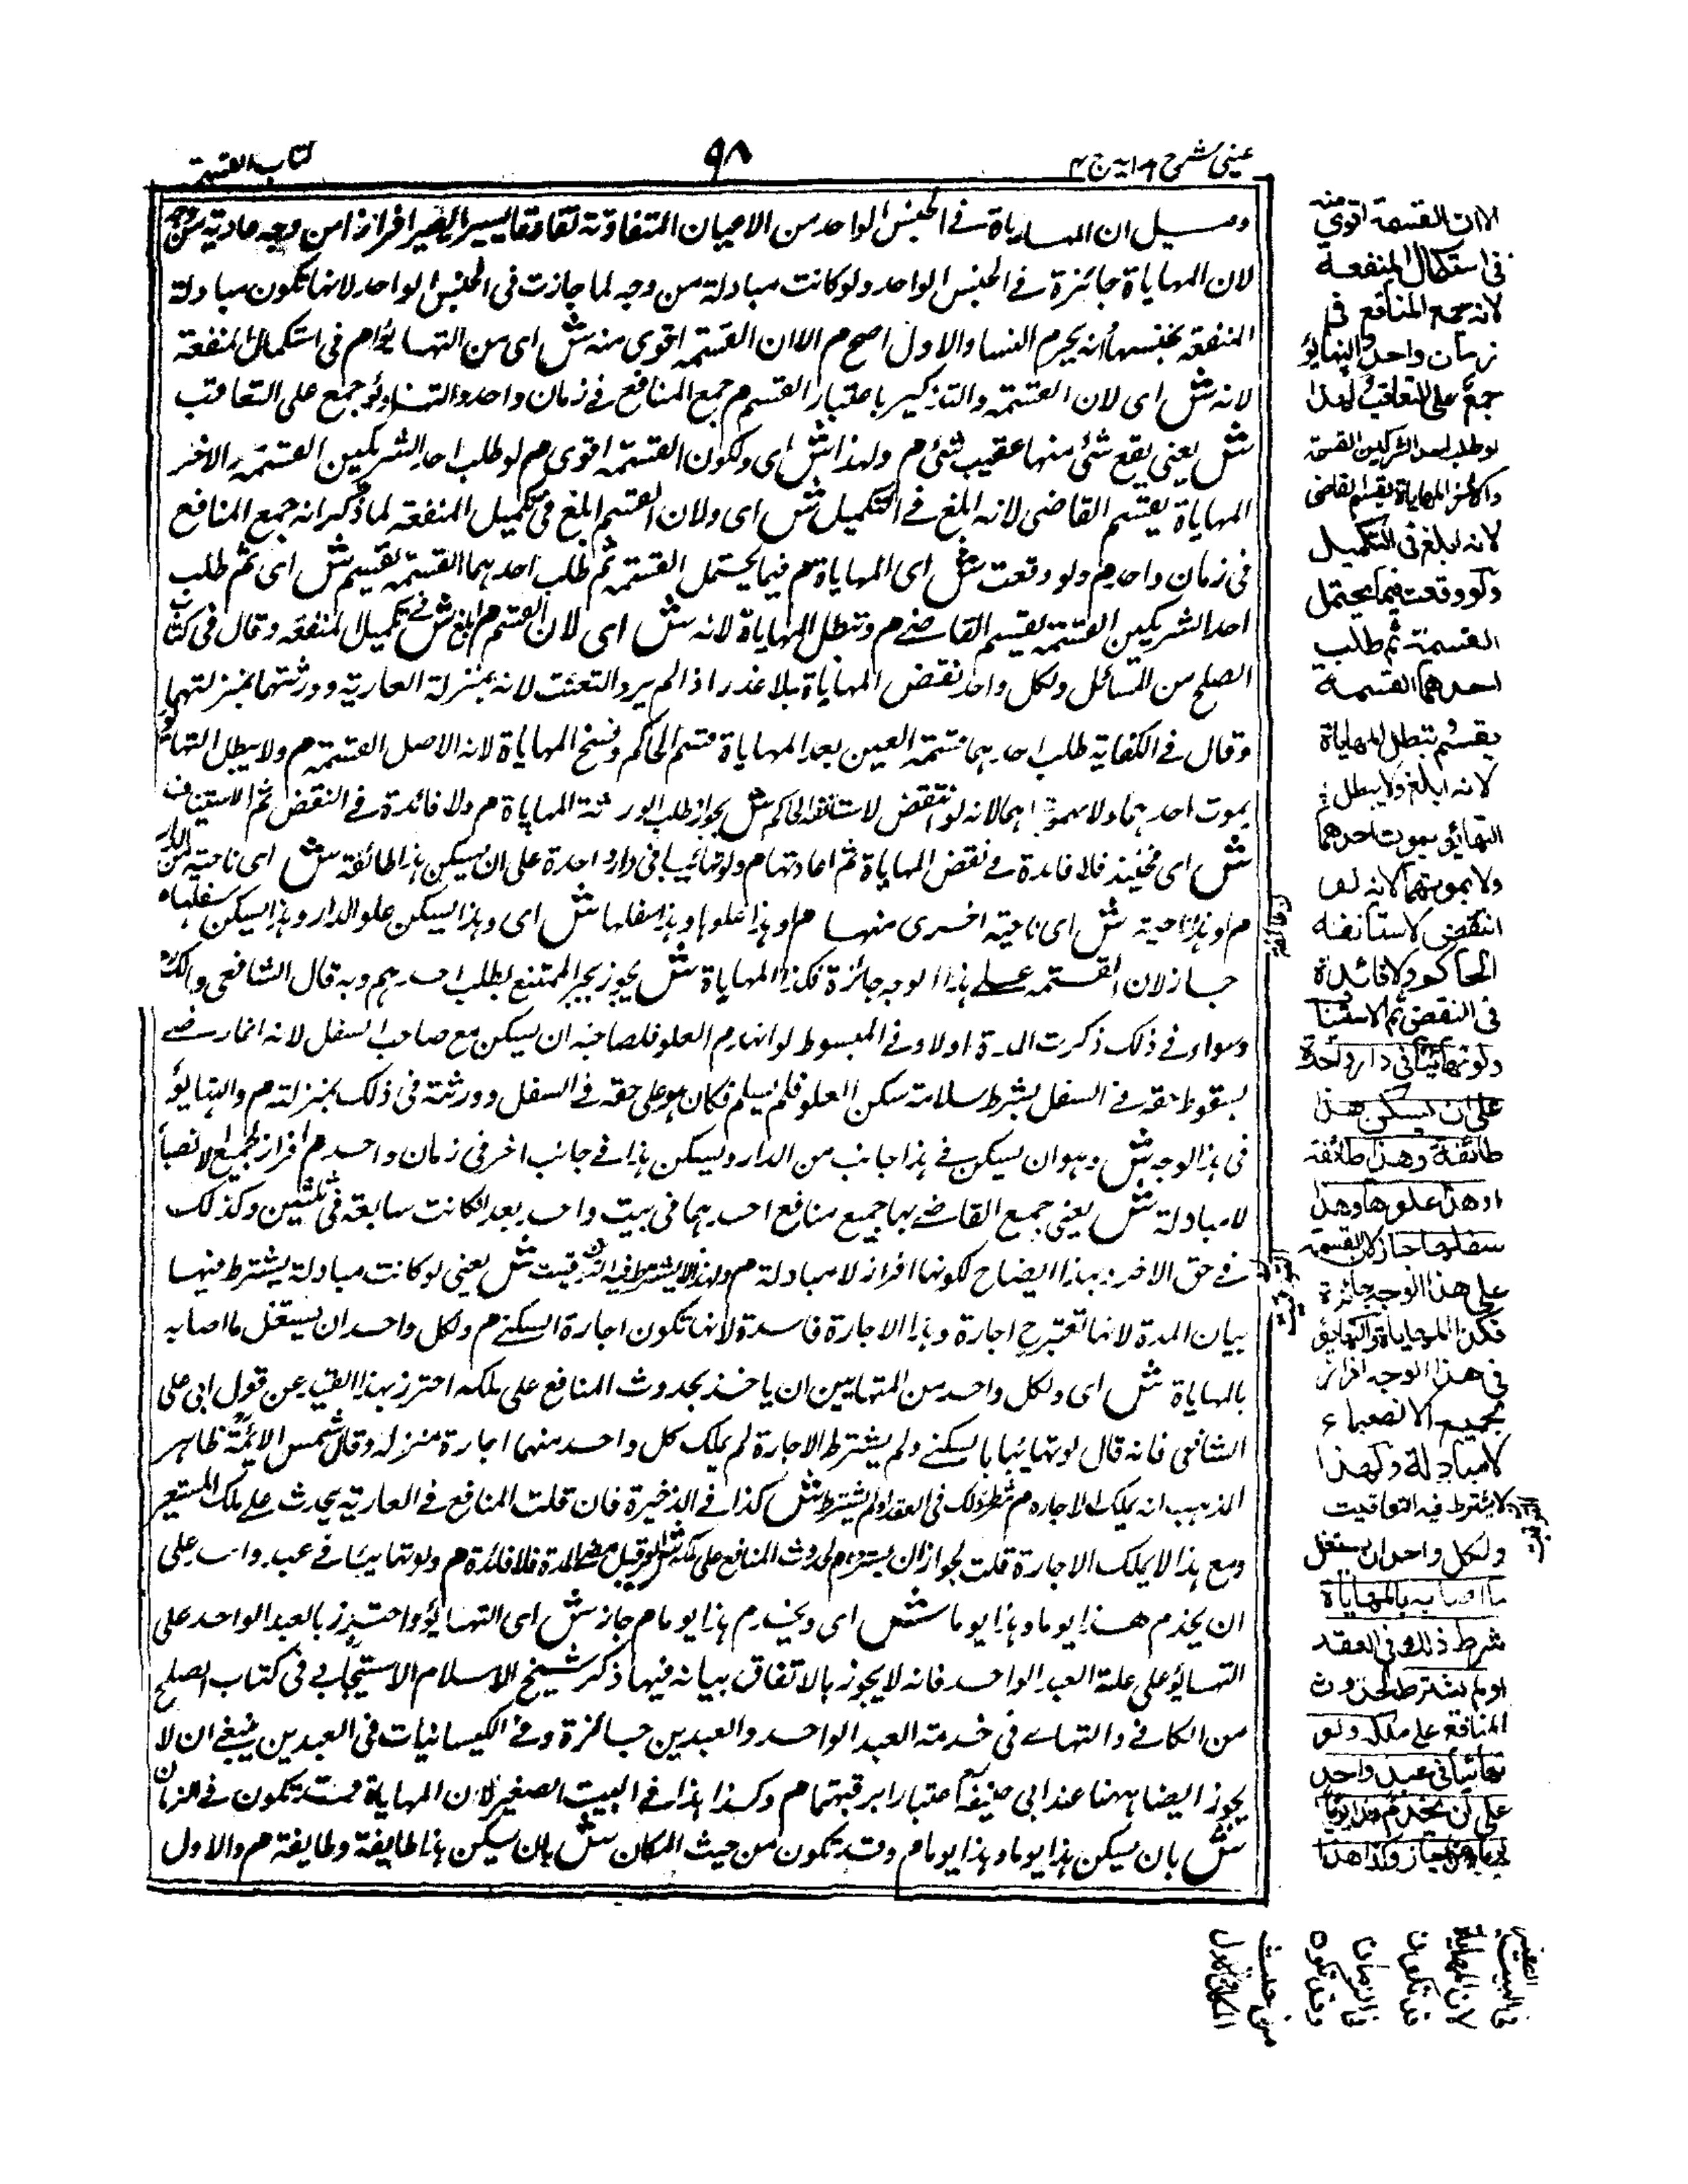 عینی شرح ہدایہ ج ۴
۹۸
کتاب القسمة
وقيل ان المهاياة فے الجنس الواحد من الاعيان المتفاوتة تفاوتا يسيرا يعتبر افرازا من وجه عادية من وجه
لان المهاياة جائزة فے الجنس الواحد ولو كانت مبادلة من وجه لما جازت فی الجنس الواحد لانها تكون مبادلة
المنفعة بجنسها وانه يحرم النسا والاول اصح م الا ان القسمة اقوی منه ش ای من التهايؤ م فی استكمال المنفعة
لانه ش ای لان القسمة والتذكير باعتبار القسم م جمع المنافع فے زمان واحد والتهايؤ جمع علی التعاقب
ش يعنی يقع شئ منها عقيب شئ م ولهذا ش ای ولكون القسمة اقوی م لو طلب احد الشريكين القسمة والاخر
المهاياة يقسم القاضی لانه ابلغ فے التكميل ش ای ولان القسم ابلغ فی تكميل المنفعة لما ذكر انه جمع المنافع
فی زمان واحد م ولو وقعت ش ای المهاياة م فيما يحتمل القسمة ثم طلب احدهما القسمة تقسم ش ای ثم طلب
احد الشريكين القسمة يقسم القاضے م وتبطل المهاياة لانه ش ای لان القسم م ابلغ ش فے تكميل المنفعة وقال فی كتاب
الصلح من المسائل ولكل واحد نقض المهاياة بلا عذر اذا لم يرد التعنت لانه بمنزلة العارية وورثتها بمنزلتهما
وقال فے الكفاية طلب احدهما قسمة العين بعد المهاياة قسم الحاكم وفسخ المهاياة لانه الاصل القسمة م ولا يبطل التهايؤ
بموت احدهما ولا بموتهما لانه لو انتقض لاستانفه الحاكم ش بجواز طلب الورثة المهاياة م ولا فائدة فے النقض ثم الاستيناف
ش ای فحينئذ فلا فائدة فے نقض المهاياة ثم اعادتها م ولو تهائيا فی دار واحدة علی ان يسكن هذا طائفة ش ای ناحية من الدار
م وهذا ناحية ش ای ناحية اخری منها م او هذا علوها وهذا سفلها ش ای وهذا يسكن علو الدار وهذا يسكن سفلها م
جاز لان القسمة علے هذا الوجه جائزة فكذا المهاياة ش يجوز بجبر الممتنع بطلب احدهم وبه قال الشافعی ومالك
وسواء فے ذلك ذكرت المدة اولا وفے المبسوط لو انهدم العلو فلصاحبه ان يسكن مع صاحب السفل لانه انما رضے
بسقوط حقه فے السفل بشرط سلامة سكن العلو فلم يسلم فكان هو علی حقه فے السفل وورثته فی ذلك بمنزلته م والتهايؤ
فی هذا الوجه ش وهو ان يسكن فے هذا جانب من الدار ويسكن هذا فے جانب اخر فی زمان واحد م افراز لجميع الانصباء
لا مبادلة ش يعنی جمع القاضے بها جميع منافع احدهما فی بيت واحد بعد ما كانت سابعة فی بيتين وكذلك
فے حق الاخر وهذا ايضاح لكونها افراز لا مبادلة م ولهذا لا يشترط فيه التوقيت ش يعنی لو كانت مبادلة يشترط فيها
بيان المدة لانها تعتبر ح اجارة وهذا الاجارة فاسدة لانها تكون اجارة السكنے م ولكل واحد ان يستغل ما اصابه
بالمهاياة ش ای ولكل واحد من المتهايين ان ياخذ بحدوث المنافع علی ملكه احترز بهذا القيد عن قول ابی علی
الشافعی فانه قال لو تهائيا بالسكنے ولم يشترط الاجارة لم يملك كل واحد منهما اجارة منزله وقال شمس الائمة ظاهر
المذهب انه يملك الاجاره م شرط ذلك فی العقد او لم يشترط ش كذا فے الذخيرة فان قلت المنافع فے العارية يحدث علے ملك المستعير
ومع هذا لا يملك الاجارة قلت لجواز ان يسترد م لحدوث المنافع علی ملكه ش قبل مضے المدة فلا فائدة م ولو تهايئا فے عبد واحد علی
ان يخدم هذا يوما وهذا يوما ش ای ويخدم هذا يوما م جاز ش ای التهايؤ واحترز بالعبد الواحد علی
التهايؤ علی غلة العبد الواحد فانه لا يجوز بالاتفاق بيانه فيها ذكر شيخ الاسلام الاسبيجابے فی كتاب الصلح
من الكافے والتهاے فی خدمة العبد الواحد والعبدين جائزة وفے الكيسانيات فی العبدين ينبغے ان لا
يجوز ايضا ههنا عند ابی حنيفة اعتبارا برقبتهما م وكذا هذا فے البيت الصغير لان المهاياة قد تكون فے الزمان
ش بان يسكن هذا يوما وهذا يوما م وقد تكون من حيث المكان ش بان يسكن هذا طايفة وطايفة م والاول
الا ان القسمة اقوی منه
فی استكمال المنفعة
لانه جمع المنافع فی
زمان واحد والتهايؤ
جمع علی التعاقب ولهذا
لو طلب احد الشريكين القسمة
والاخر المهاياة يقسم القاضی
لانه ابلغ فی التكميل
ولو وقعت فيما يحتمل
القسمة ثم طلب
احدهما القسمة
يقسم وتبطل المهاياة
لانه ابلغ ولا يبطل
التهايؤ بموت احدهما
ولا بموتهما لانه لو
انتقض لاستانفه
الحاكم ولا فائدة
فی النقض ثم الاستينا
ولو تهائيا فی دار واحدة
علی ان يسكن هذا
طائفة وهذا طائفة
او هذا علوها وهذا
سفلها جاز لان القسمة
علی هذا الوجه جائزة
فكذا المهاياة والتهايؤ
فی هذا الوجه افراز
لجميع الانصباء
لا مبادلة ولهذا
لا يشترط فيه التاقيت
ولكل واحد ان يستغل
ما اصابه بالمهاياة
شرط ذلك فی العقد
او لم يشترط لحدوث
المنافع علی ملكه ولو
تهائيا فی عبد واحد
علی ان يخدم هذا يوما
وهذا يوما جاز وكذا هذا
فی البيت الصغير
لان المهاياة
قد تكون
فی الزمان
وقد تكون
من حيث
المكان والاول